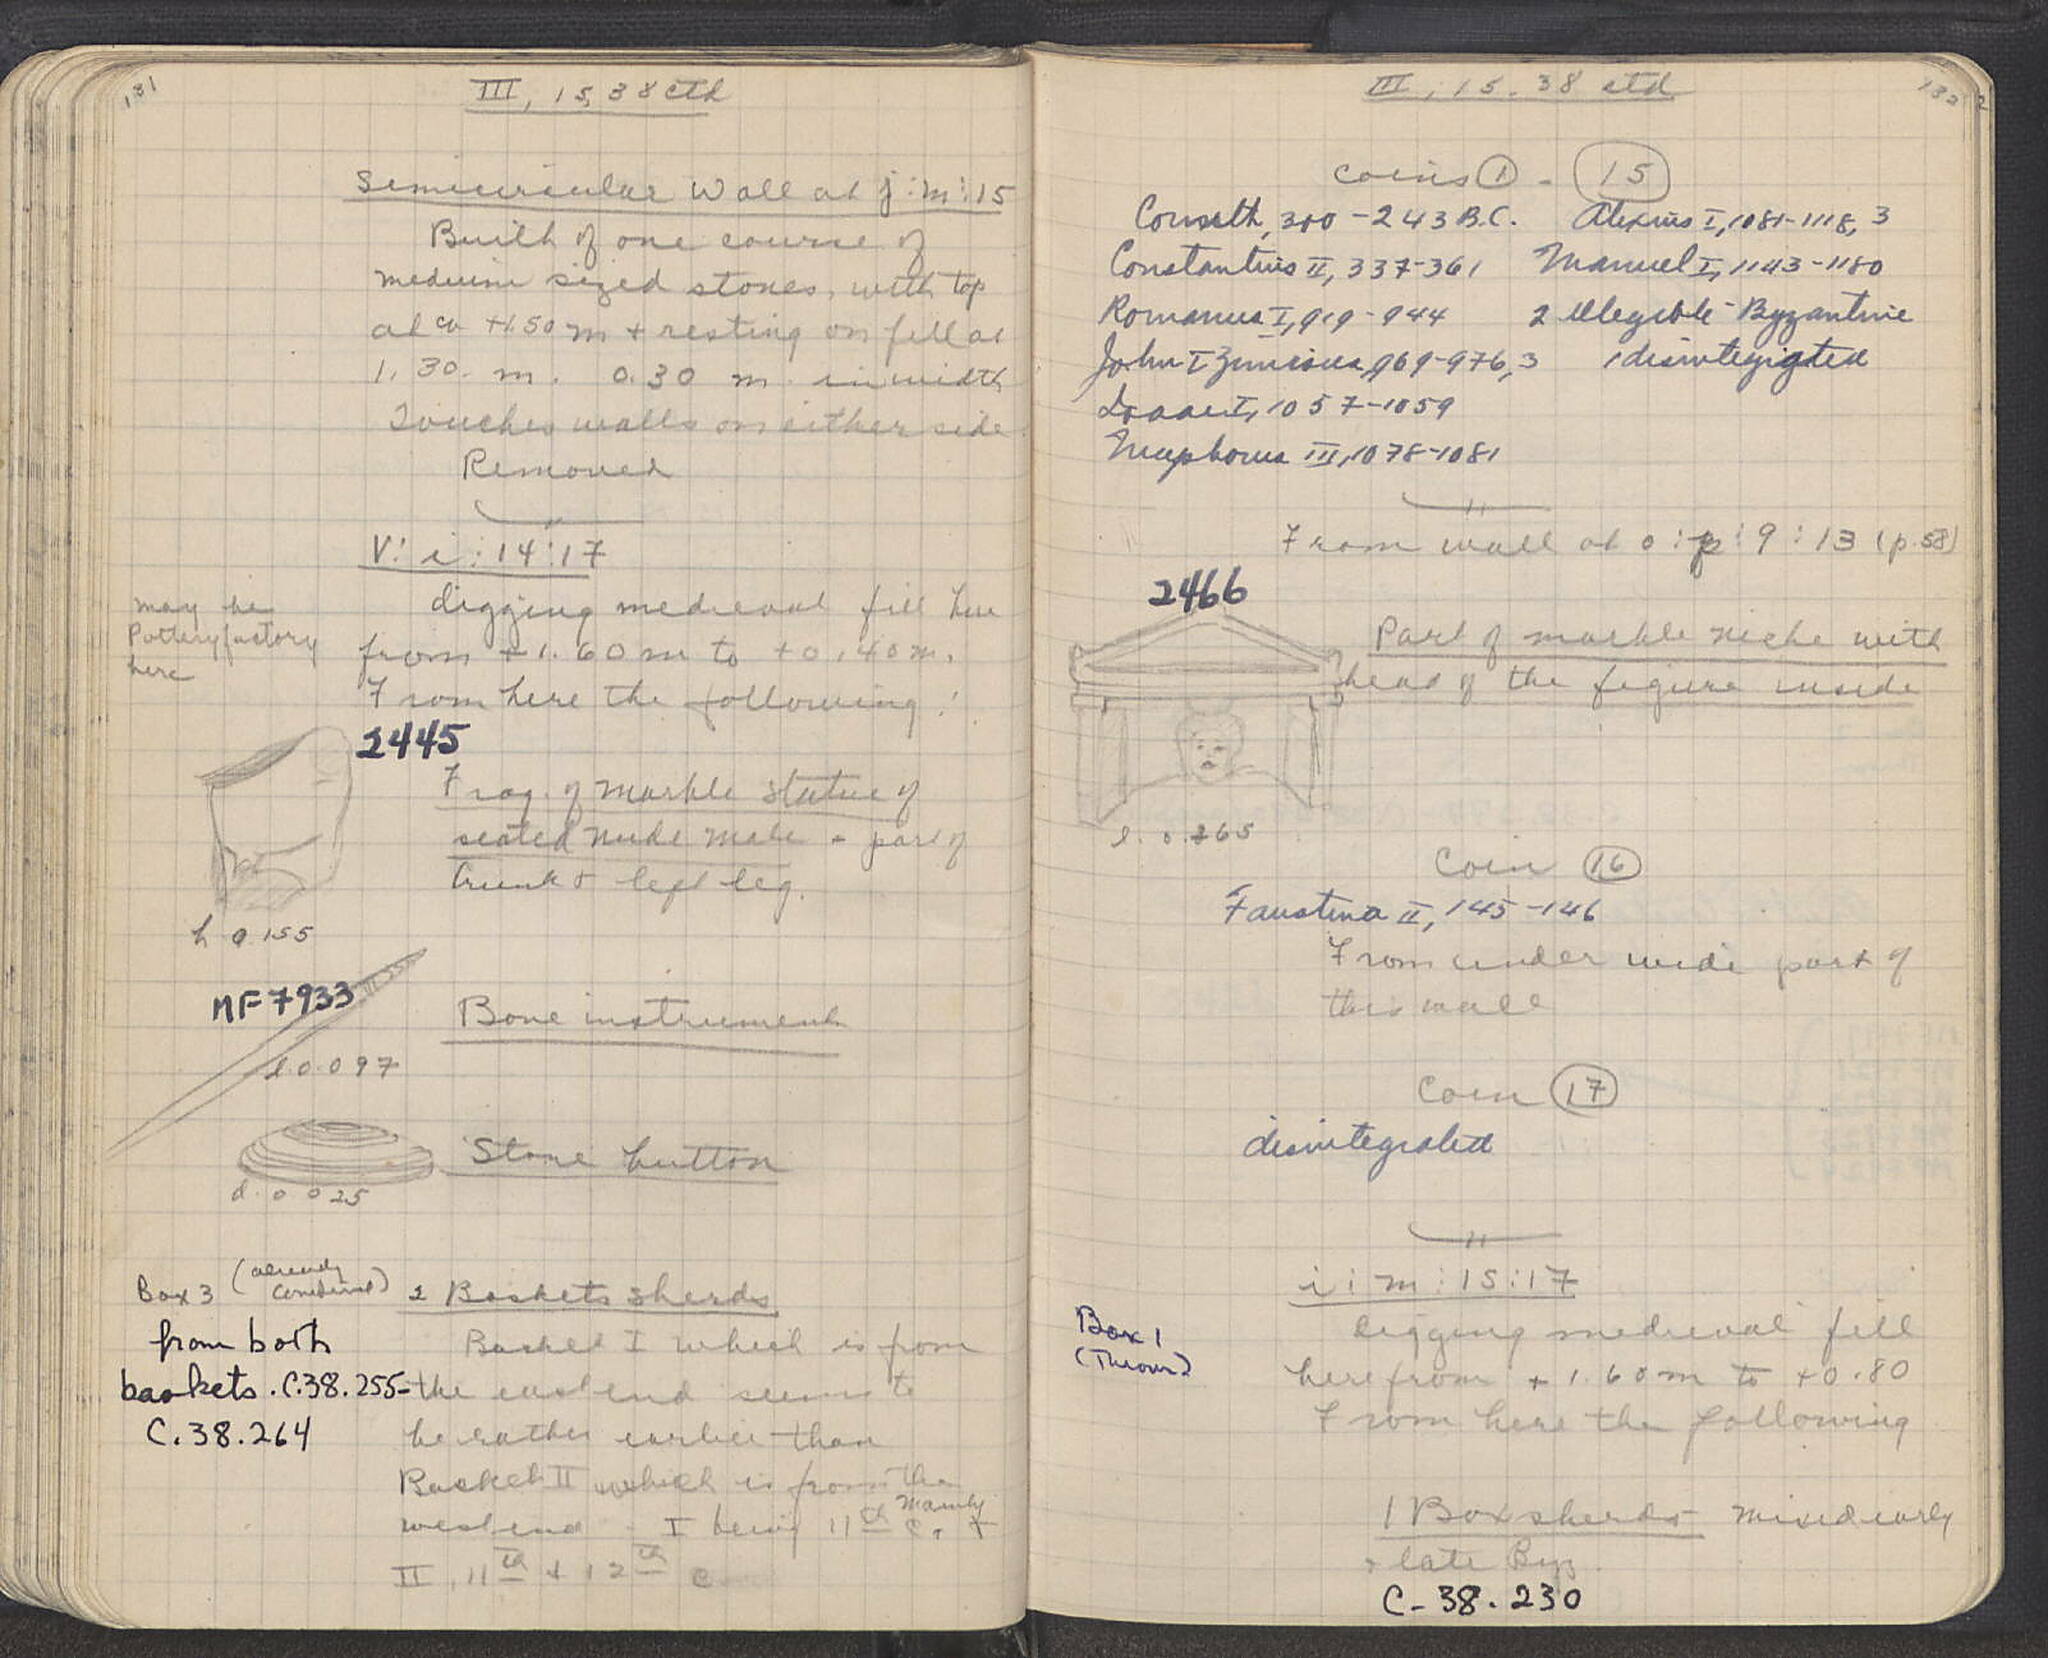 131
III, 15, 38 ctd
Semicircular Wall at j:m:15
Built of one course of
medium sized stones, with top
at ca +1.50 m + resting on fill at
1.30. m. 0.30 m. in width
Touches walls on either side
Removed
V: i:14:17
may be
Pottery factory
here
digging medieval fill here
from +1.60 m to +0.40 m.
From here the following:
2445
Frag. of marble statue of
seated nude male - part of
trunk + left leg.
h 0.155
MF 7933
Bone instrument
l. 0.097
Stone button
d. 0.025
Box 3 (already
combined)
from both
baskets. C.38.255-
C.38.264
2 Baskets sherds
Basket I which is from
the east end seems to
be rather earlier than
Basket II which is from the
west end - I being mainly 11th c. +
II, 11th + 12th c.
132
III, 15.38 ctd
coins 1 - 15
Corinth, 300-243 B.C. Alexius I, 1081-1118, 3
Constantius II, 337-361 Manuel I, 1143-1180
Romanus I, 919-944 2 illegible Byzantine
John I Zimisces, 969-976, 3 1 disintegrated
Isaac I, 1057-1059
Nicephorus III, 1078-1081
From wall at o:p:9:13 (p.58)
2466
Part of marble niche with
head of the figure inside
l. 0.265
Coin 16
Faustina II, 145-146
From under wide part of
this wall
Coin 17
disintegrated
i:m:15:17
Box 1
(Thrown)
digging medieval fill
here from +1.60 m to +0.80
From here the following
1 Box sherds - mixed early
+ late Byz.
C-38.230